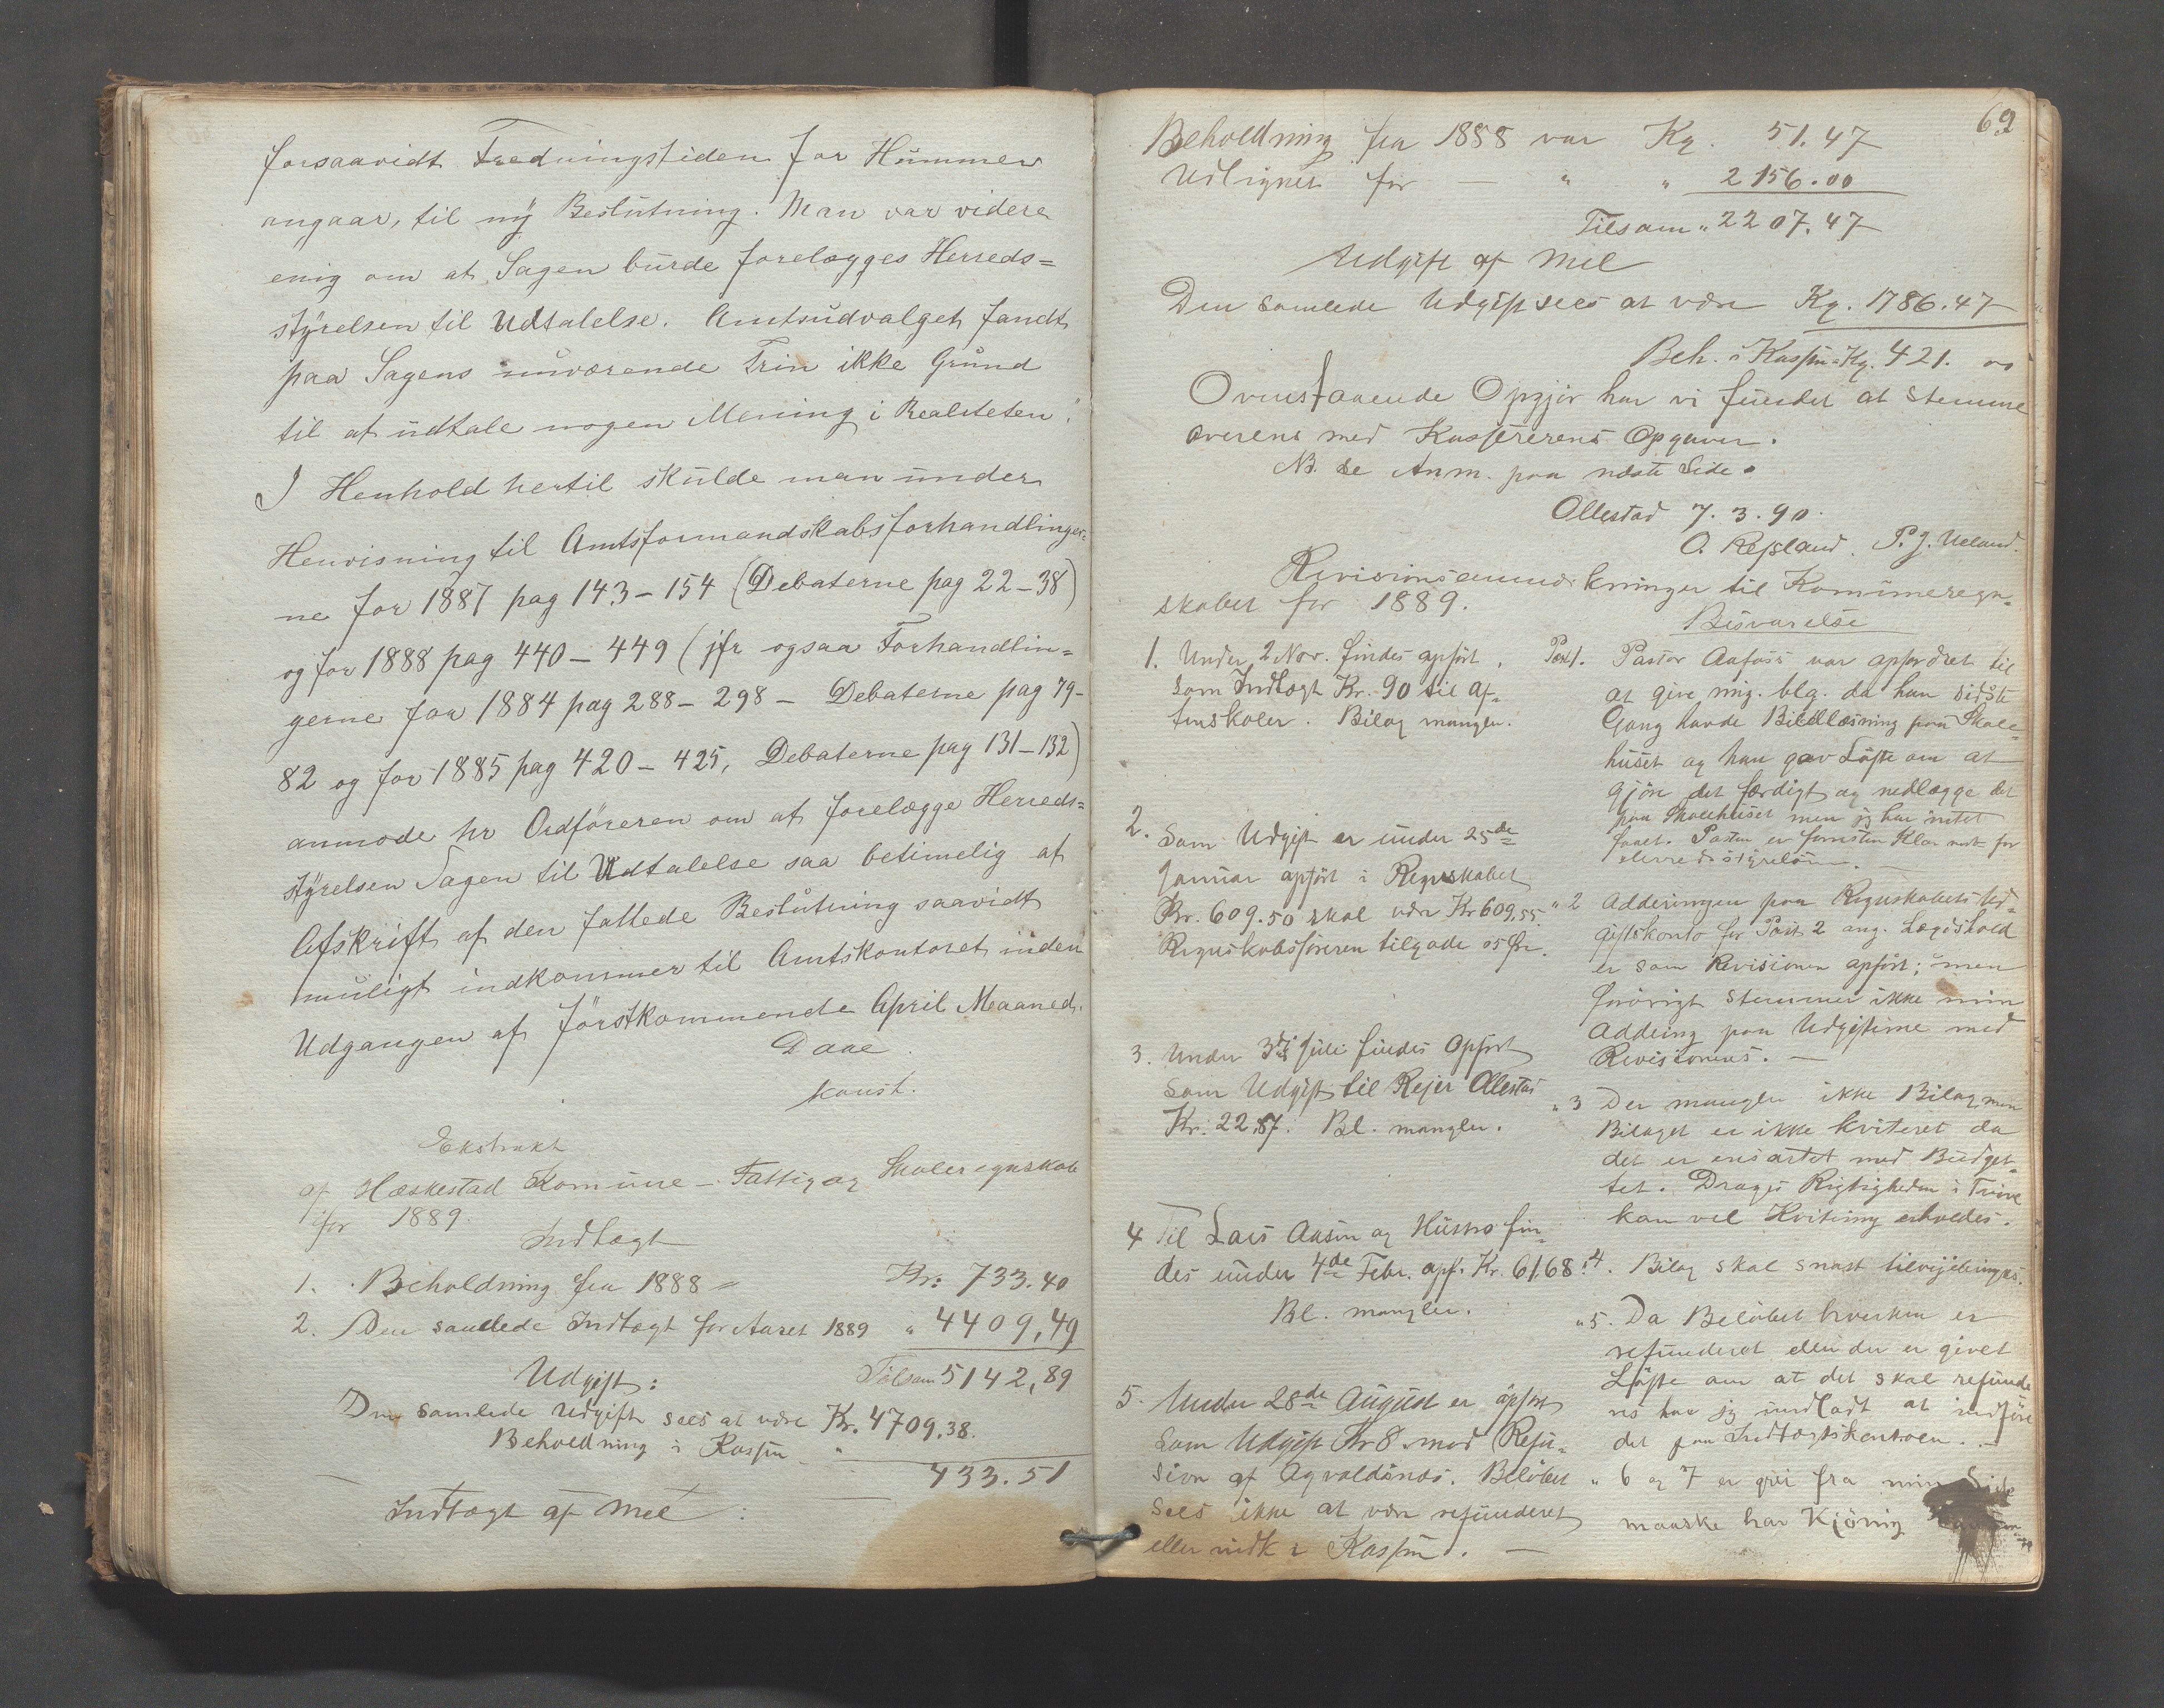 forsaavidt Fredningstiden for Hummer
angaar, til ny Beslutning. Man var videre
enig om at Sagen burde forelægges Herreds=
styrelsen til Udtalelse. Amtsudvalget fandt
paa Sagens nuværende Trin ikke Grund
til at udtale nogen Mening i Realiteten.
I Henhold hertil skulde man under
Henvisning til Amtsformandskabsforhandlinger=
ne for 1887 pag 143-154 (Debaterne pag 22-38)
og for 1888 pag 440-449 (jfr ogsaa Forhandlin=
gerne for 1884 pag 288-298 - Debaterne pag 79-
82 og for 1885 pag 420-425, Debaterne pag 131-132)
anmode hr Ordføreren om at forelægge Herreds=
styrelsen Sagen til Udtalelse saa betimelig at
Afskrift af den fattede Beslutning saavidt
muligt indkommer til Amtskontoret inden
Udgangen af förstkommende April Maaned.
Daae
konst.
Ekstrakt
af Hæskestad Komune - Fattig og Skoleregnskab
for 1889.
Indtægt
1. Beholdning fra 1888 = Kr: 733.40
2. Den samlede Indtægt for Aaret 1889 " 4409,49
Udgift: Tilsam 5142,89
Den samlede Udgift sees at være Kr. 4709.38.
Beholdning i Kassen - " 433.51
Indtægt af Mel :
69
Beholdning fra 1888 var Kg. 51.47
Udlignet for - " " 2156.00
Tilsam " 2207.47
Udgift af Mel
Den samlede Udgift sees at være Kg. 1786.47
Beh. i Kassen Kg. 421. 00
Ovenstaaende Opgjør har vi fundet at stemme
overens med Kassererens Opgaver.
NB. se Anm. paa næste Side.
Ollestad 7.3.90.
O. Refsland. P.J. Ueland.
Revisionsanmærkninger til Komuneregn=
skabet for 1889.
Besvarelse
1. Under 2 Nov. findes opført
som Indtægt Kr. 90 til Af=
tenskoler. Bilag mangler.
2. Som Udgift er under 25de
Januar opført i Regnskabet
Kr. 609.50 skal være Kr 609,55
Regnskabsføreren tilgode 05 Øre.
3. Under 3die Juli findes Opført
som Udgift til Rejer Ollestad
Kr. 22,87. Bl. mangler.
4 Til Lars Aasen og Hustro fin=
des under 4de Febr. opf. Kr. 61.68.
Bl. mangler.
5. Under 28de August er opført
som Udgift Kr 8 mod Refu=
sion af Ogvaldsnæs. Beløbet
sees ikke at være refunderet
eller indk i Kassen. -
Post 1. Pastor Aafoss var opfordret til
at give mig. blg. da han sidste
Gang havde Bibellæsning paa Skole=
huset og han gav Løfte om at
gjøre det færdigt og nedlægge det
paa Skolehuset men jeg har intet
faaet. Pastor er forresten Klar nok for
Herredsstyrelsen. -
" 2 Adderingen paa Regnskabets Ud=
giftskonto for Post 2 ang. Lægdshold
er som Revisionen opført; men
forövrigt stemmer ikke min
Addering paa Udgifterne med
Revisionens. -
" 3 Der mangler ikke Bilag men
Bilaget er ikke kviteret da
det er ensartet med Budget=
tet. Drages Rigtigheden i Tvivl
kan vel Kvitering erholdes.
" 4. Bilag skal snart tilvejebringes.
" 5. Da Beløbet hverken er
refunderet eller der er givet
Løfte om at det skal refunde
res har jeg undladt at indføre
det paa Indtægtskontoen. -
" 6 og 7 er grei fra min Side
maaske har Kjönig